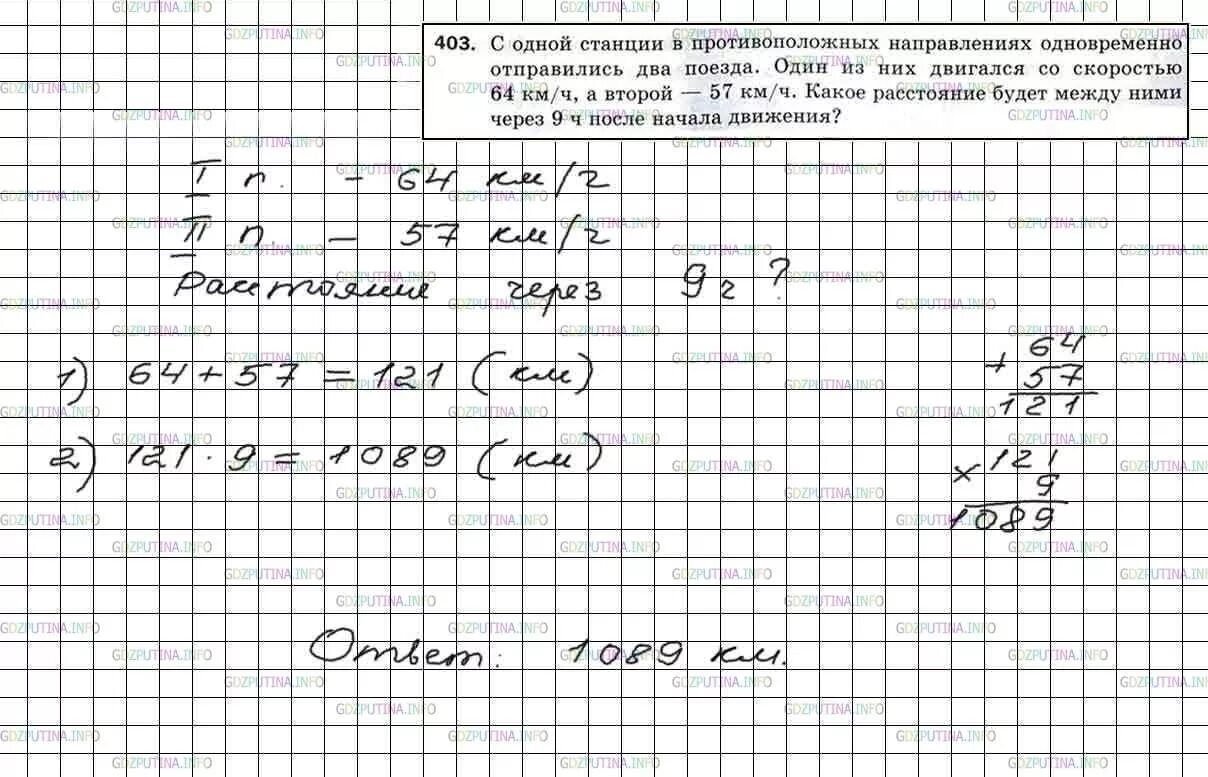 403. С одной станции в противоположных направлениях одновременно
отправились два поезда. Один из них двигался со скоростью
64 км/ч, а второй — 57 км/ч. Какое расстояние будет между ними
через 9 ч после начала движения?
I п. – 64 км/ч
II п. – 57 км/ч
Расстояния через 9 ч ?
1) 64 + 57 = 121 (км)
2) 121 · 9 = 1089 (км)
64
+ 57
121
121
× 9
1089
Ответ: 1089 км.
GDZPUTINA.INFO